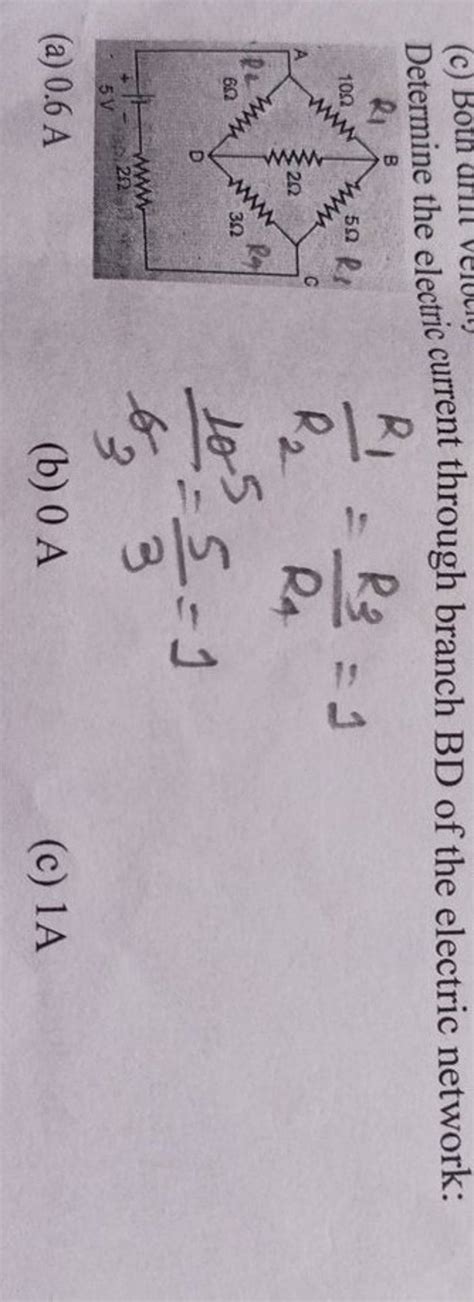 (c) Both drift velocity
Determine the electric current through branch BD of the electric network:
B
R1
10Ω
5Ω
R3
A
2Ω
C
R2
6Ω
3Ω
R4
D
+ -
5 V
2Ω
R1/R2 = R3/R4 = 1
10 5/6 3 = 5/3 = 1
(a) 0.6 A (b) 0 A (c) 1A